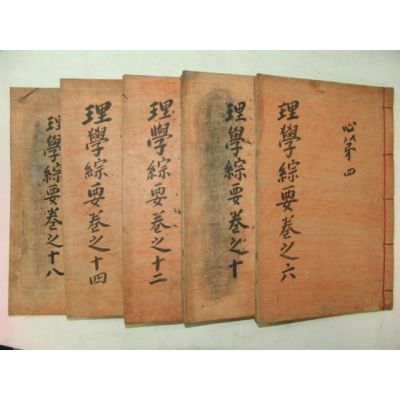 心第四
理學綜要卷之六
理學綜要卷之十
理學綜要卷之十二
理學綜要卷之十四
理學綜要卷之十八